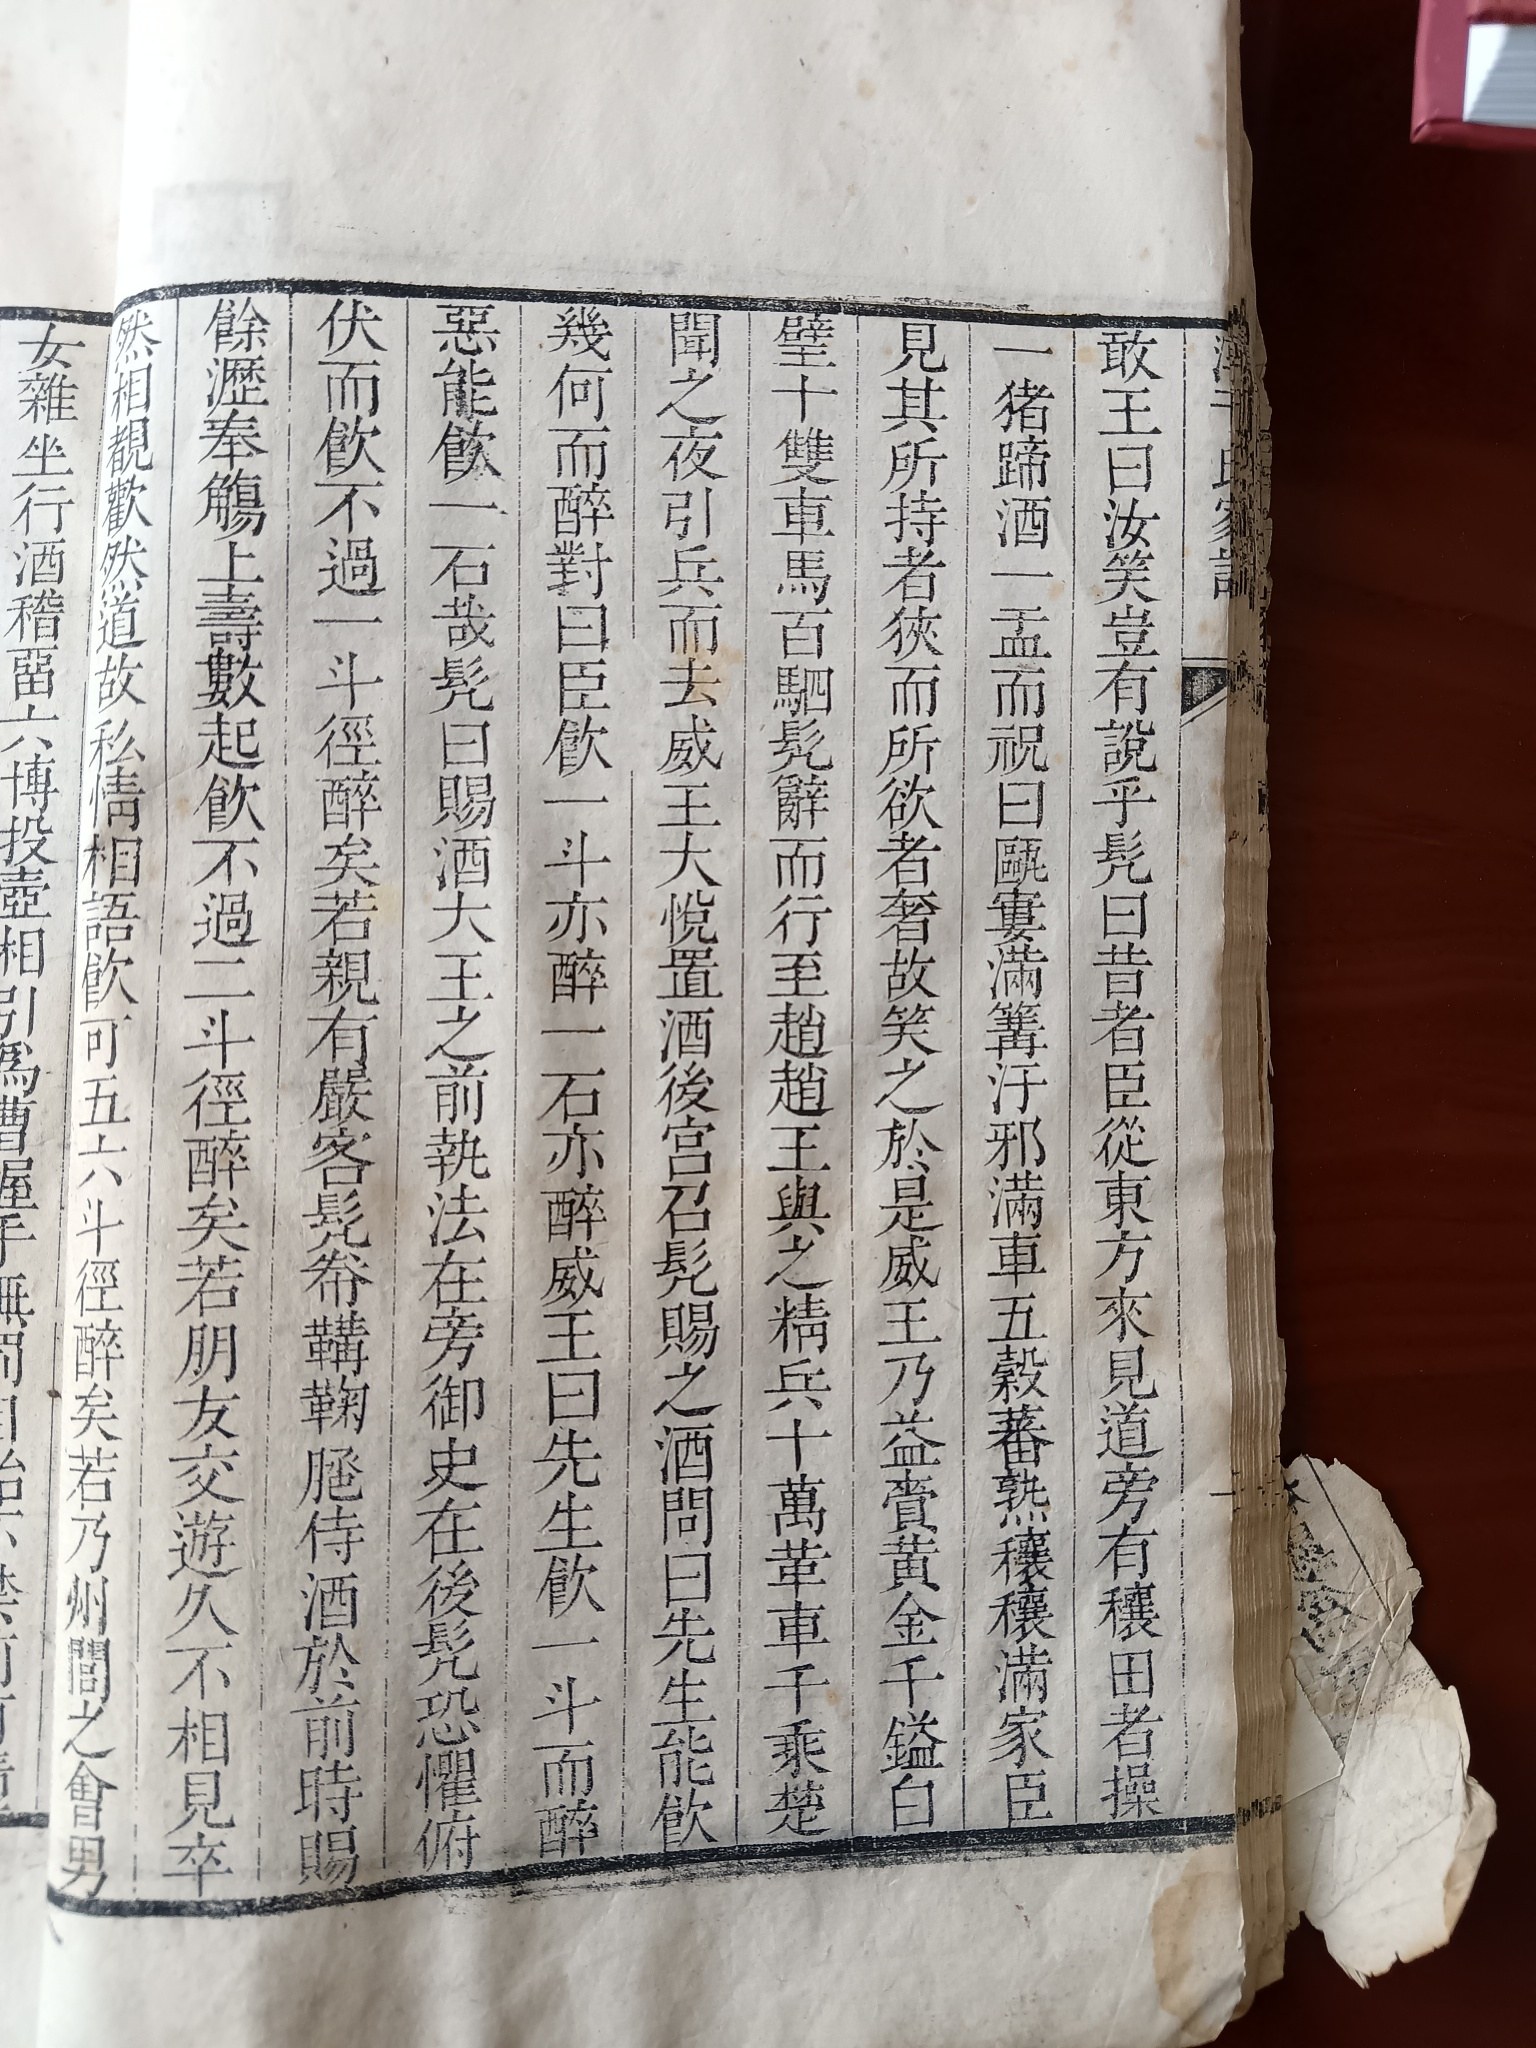 氏家訓
敢王曰汝笑豈有說乎髡曰昔者臣從東方來見道旁有穰田者操
一猪蹄酒一盂而祝曰甌窶滿篝汙邪滿車五穀蕃熟穰穰滿家臣
見其所持者狹而所欲者奢故笑之於是威王乃益賫黃金千鎰白
璧十雙車馬百駟髡辭而行至趙趙王與之精兵十萬革車千乘楚
聞之夜引兵而去威王大悅置酒後宮召髡賜之酒問曰先生能飲
幾何而醉對曰臣飲一斗亦醉一石亦醉威王曰先生飲一斗而醉
惡能飲一石哉髡曰賜酒大王之前執法在旁御史在後髡恐懼俯
伏而飲不過一斗徑醉矣若親有嚴客髡帣鞲鞠䠆侍酒於前時賜
餘瀝奉觴上壽數起飲不過二斗徑醉矣若朋友交遊久不相見卒
然相覩歡然道故私情相語飲可五六斗徑醉矣若乃州閭之會男
女雜坐行酒稽畱六博投壺相引爲曹握手無罰目眙不禁前有墮